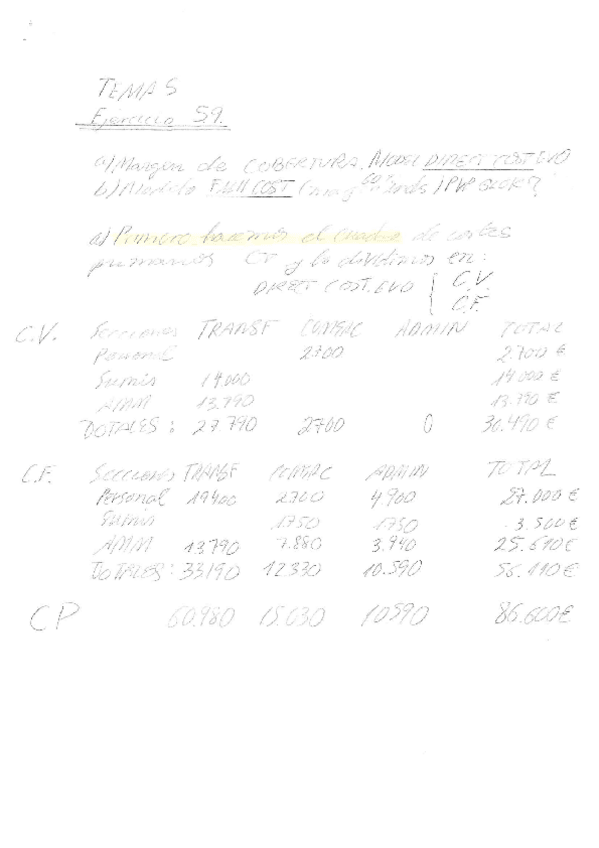 TEMA 5
Ejercicio 59.
a) Margen de COBERTURA. MODEL DIRECT COST. EVO
b) Modelo FULL COST
a) Primero hacemos el cuadro de costes
primarios CP y lo dividimos en:
DIRECT COST. EVO { C.V.
C.F.
C.V. Secciones TRANSF COMAC ADMIN TOTAL
Personal 2700 2.700 €
Sumis 14.000 14.000 €
AMM 13.790 13.790 €
TOTALES: 27790 2700 0 30.490 €
C.F. Secciones TRANSF COMAC ADMIN TOTAL
Personal 19400 2700 4900 27.000 €
Sumis 1750 1750 3.500 €
AMM 13790 7.880 3.940 25.610 €
TOTALES: 33190 12.330 10.590 56.110 €
CP 60.980 15.030 10590 86.600 €